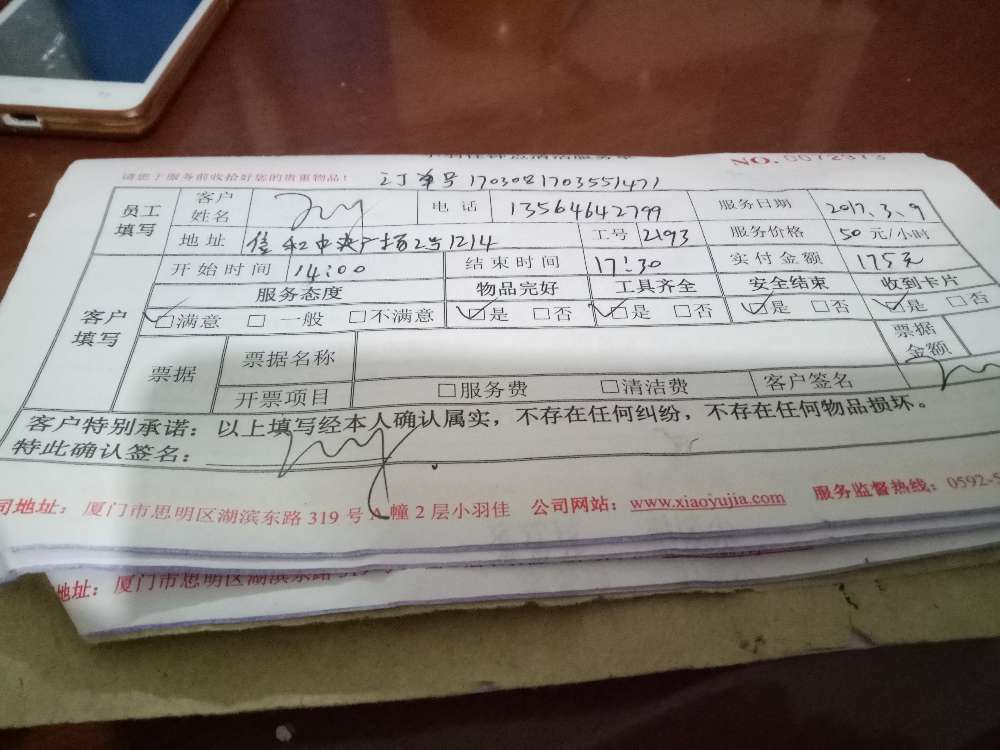 NO. 0072373
请您于服务前收拾好您的贵重物品！ 订单号 1703081703551471
员工填写 客户姓名 电话 13564642799 服务日期 2017.3.9
地址 佳和中央广场2号1214 工号 2193 服务价格 50 元/小时
客户填写 开始时间 14:00 结束时间 17:30 实付金额 175元
服务态度 物品完好 工具齐全 安全结束 收到卡片
☑满意 □一般 □不满意 ☑是 □否 ☑是 □否 ☑是 □否 ☑是 □否
票据 票据名称 票据金额
开票项目 □服务费 □清洁费 客户签名
客户特别承诺：以上填写经本人确认属实，不存在任何纠纷，不存在任何物品损坏。
特此确认签名：
司地址：厦门市思明区湖滨东路 319 号 A 幢 2 层小羽佳 公司网站：www.xiaoyujia.com 服务监督热线：0592-5
地址：厦门市思明区湖滨东路